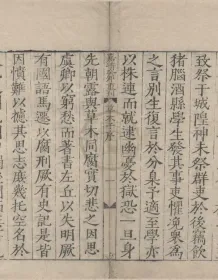 致祭于城隍神未祭群吏於後竊飲
猪腦酒縣學生發其事吏懼浼衆為
之言別生復言於分臬予適至學亦
以株連而就逮幽憂於獄恐一旦身
先朝露與草木同腐實切悲之因思
虞卿以窮愁而著書左丘以失明厥
有國語馬遷以腐刑厥有史記是皆
因憤難以攄其思志庶幾托空名於